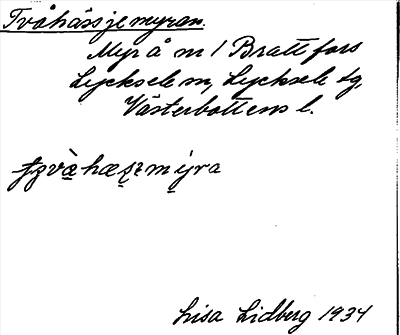 Tvåhässjemyran.
Myr å n 1 Brattfors
Lycksele sn, Lycksele tg,
Västerbottens l.
Lisa Lidberg 1934